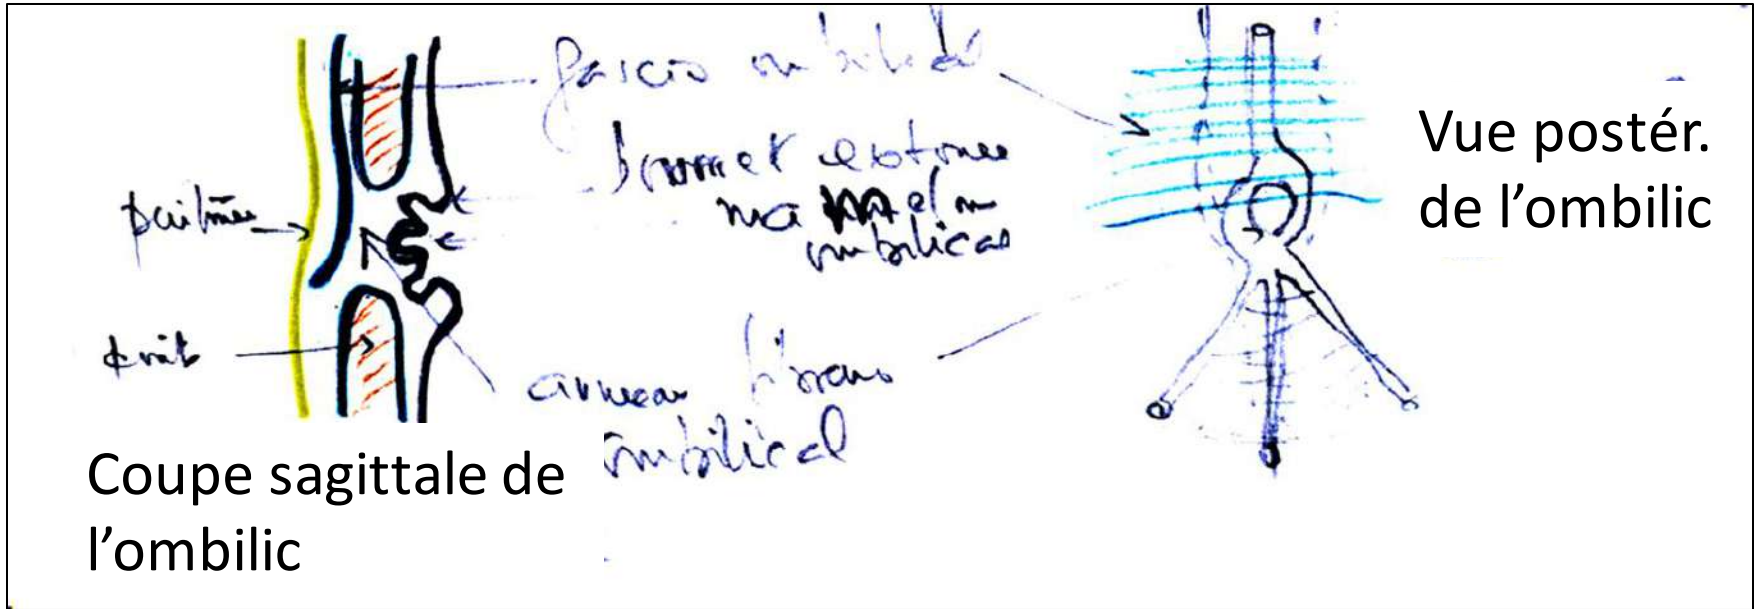 fascia ombilical
bourrelet cutanée
mamelon
ombilical
péritoine
droit
anneau fibreux
ombilical
Vue postér.
de l’ombilic
Coupe sagittale de
l’ombilic